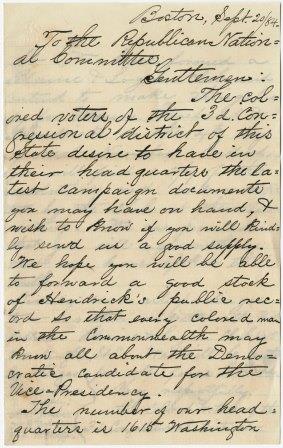 Boston, Sept. 20/84.
To the Republican Nation=
al Committee
Gentlemen:
The col=
ored voters, of the 3d. Con=
gressional district of this
state desire to have in
their headquarters the la=
test campaign documents
you may have on hand, &
wish to know if you will kind=
ly send us a good supply.
We hope you will be able
to forward a good stock
of Hendrick's public rec=
ord so that every colored man
in the Commonwealth may
know all about the Demo=
cratic candidate for the
Vice-Presidency.
The number of our head=
quarters is 1615 Washington